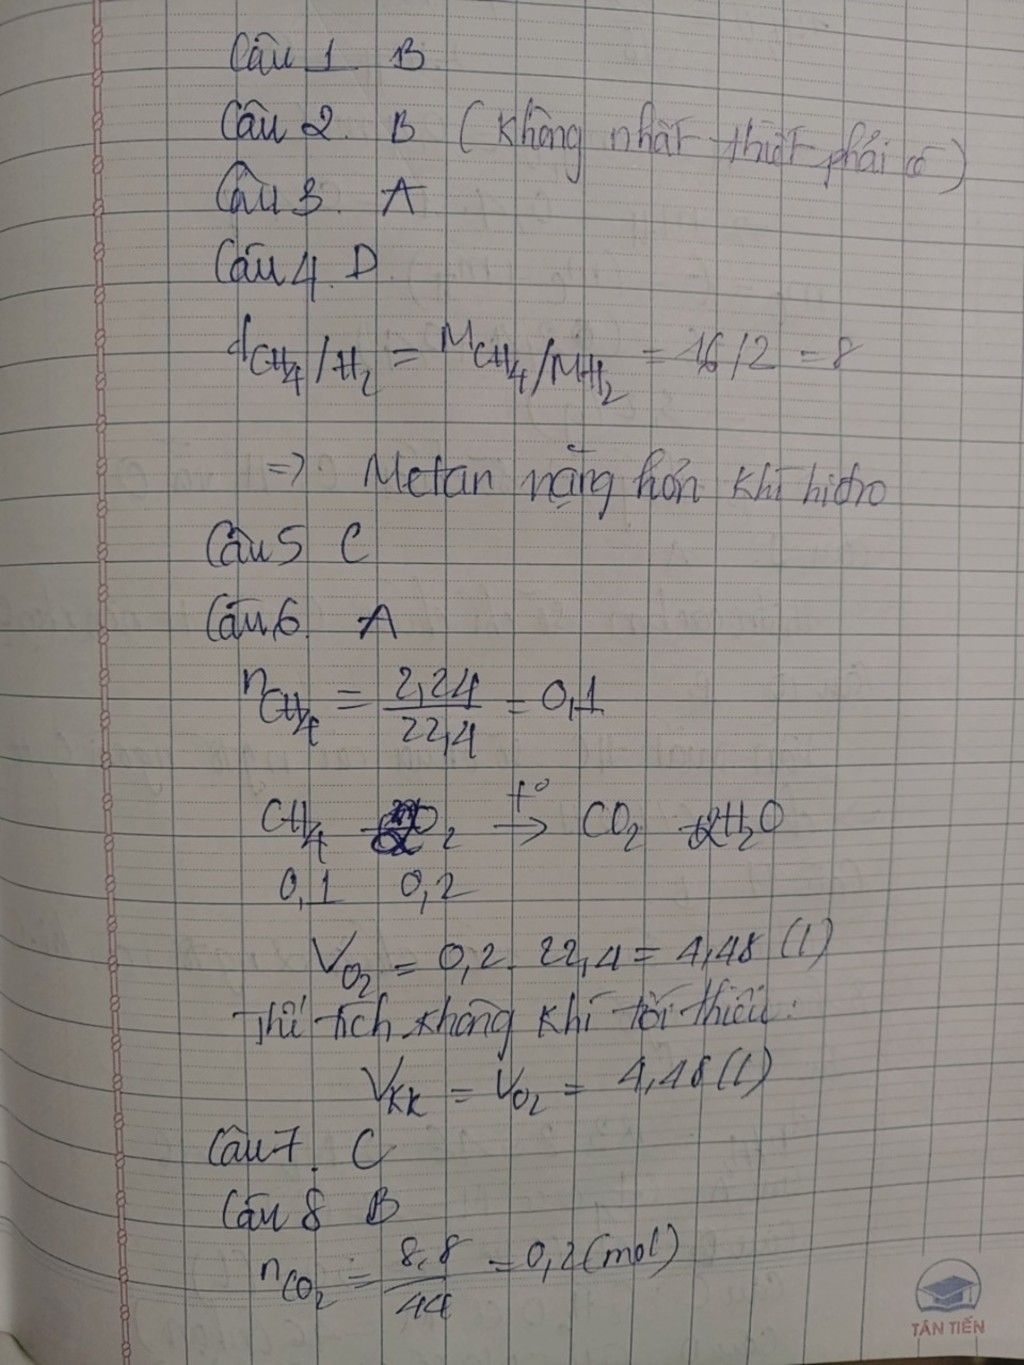 Câu 1 B
Câu 2. B (không nhất thiết phải có)
Câu 3. A
Câu 4. D.
dCH4/H2 = MCH4/MH2 = 16/2 = 8
=> Metan nặng hơn khí hiđro
Câu 5 C
Câu 6. A
nCH4 = 2,24/22,4 = 0,1
CH4 + 2O2 t° → CO2 + 2H2O
0,1 0,2
VO2 = 0,2. 22,4 = 4,48 (l)
Thể tích không khí tối thiểu:
VKK = VO2 = 4,48 (l)
Câu 7. C
Câu 8 B
nCO2 = 8,8/44 = 0,2 (mol)
TÂN TIẾN